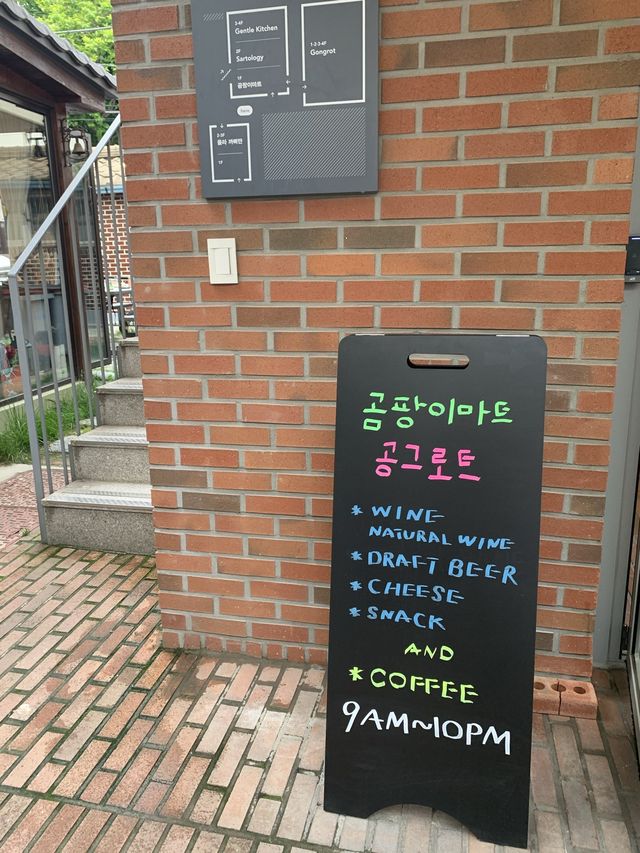 3-4F
Gentle Kitchen
2F
Sartology
1F
곰팡이마트
1-2-3-4F
Gongrot
2-3F
1F
곰팡이마트
공그로트
* WINE
NATURAL WINE
* DRAFT BEER
* CHEESE
* SNACK
AND
* COFFEE
9AM~10PM